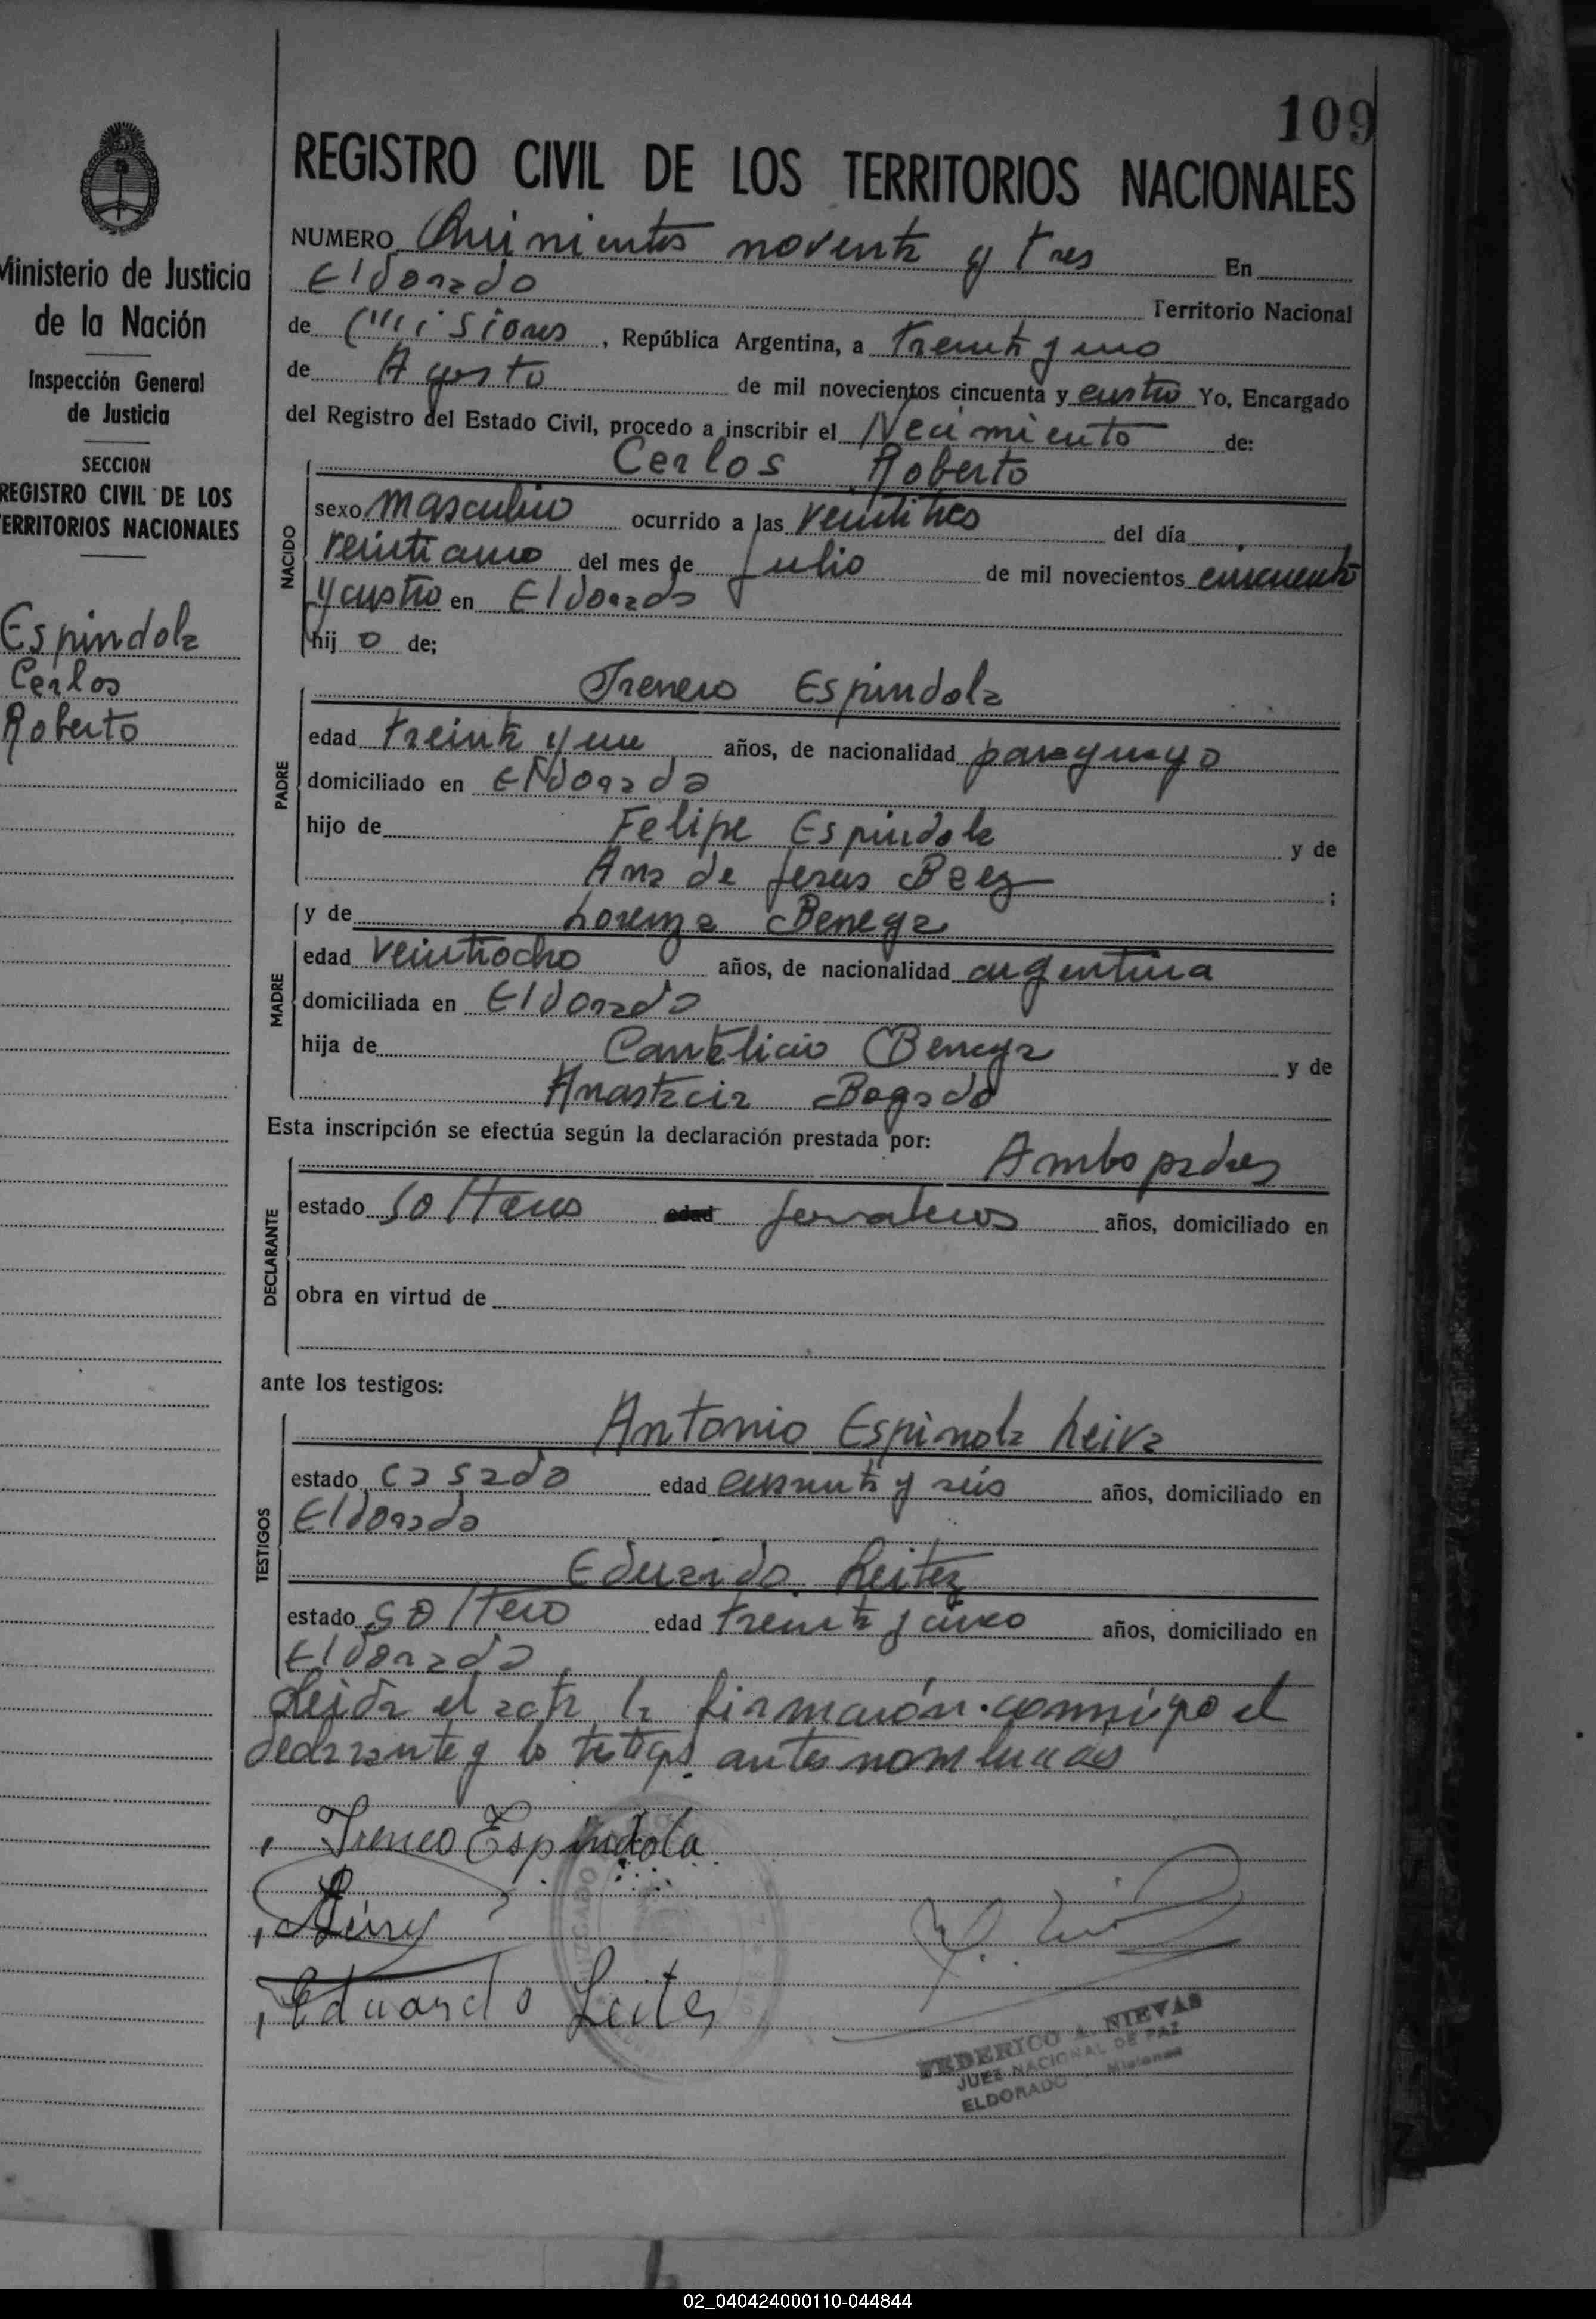 109
REGISTRO CIVIL DE LOS TERRITORIOS NACIONALES
Ministerio de Justicia
de la Nación
Inspección General
de Justicia
SECCION
REGISTRO CIVIL DE LOS
TERRITORIOS NACIONALES
Espindola
Carlos
Roberto
NUMERO Quinientos noventa y tres En
Eldorado Territorio Nacional
de Misiones, República Argentina, a treinta y uno
de Agosto de mil novecientos cincuenta y cuatro Yo, Encargado
del Registro del Estado Civil, procedo a inscribir el Nacimiento de:
NACIDO
Carlos Roberto
sexo masculino ocurrido a las veintitres del día
del mes de Julio de mil novecientos cincuenta
y cuatro en Eldorado
hij o de;
PADRE
Ireneo Espindola
edad treinta y un años, de nacionalidad paraguayo
domiciliado en Eldorado
hijo de Felipe Espindola y de
Ana de Jesus Baez ;
MADRE
y de Lorenza Benega
edad veintiocho años, de nacionalidad argentina
domiciliada en Eldorado
hija de Cantalicio Benega y de
Anastacia Bogado
Esta inscripción se efectúa según la declaración prestada por:
DECLARANTE
Ambo padres
estado solteros edad jornaleros años, domiciliado en
obra en virtud de
ante los testigos:
TESTIGOS
Antonio Espinola Leiva
estado casado edad y seis años, domiciliado en
Eldorado
Eduardo Leites
estado soltero edad treinta y cinco años, domiciliado en
Eldorado
Leida el acta la firmarón conmigo el
declarante y lo testigos antes nombrados
Ireneo Espindola
Eduardo Leites
JUZGADO
FEDERICO A. NIEVAS
JUEZ NACIONAL DE PAZ
ELDORADO Misiones
02_040424000110-044844